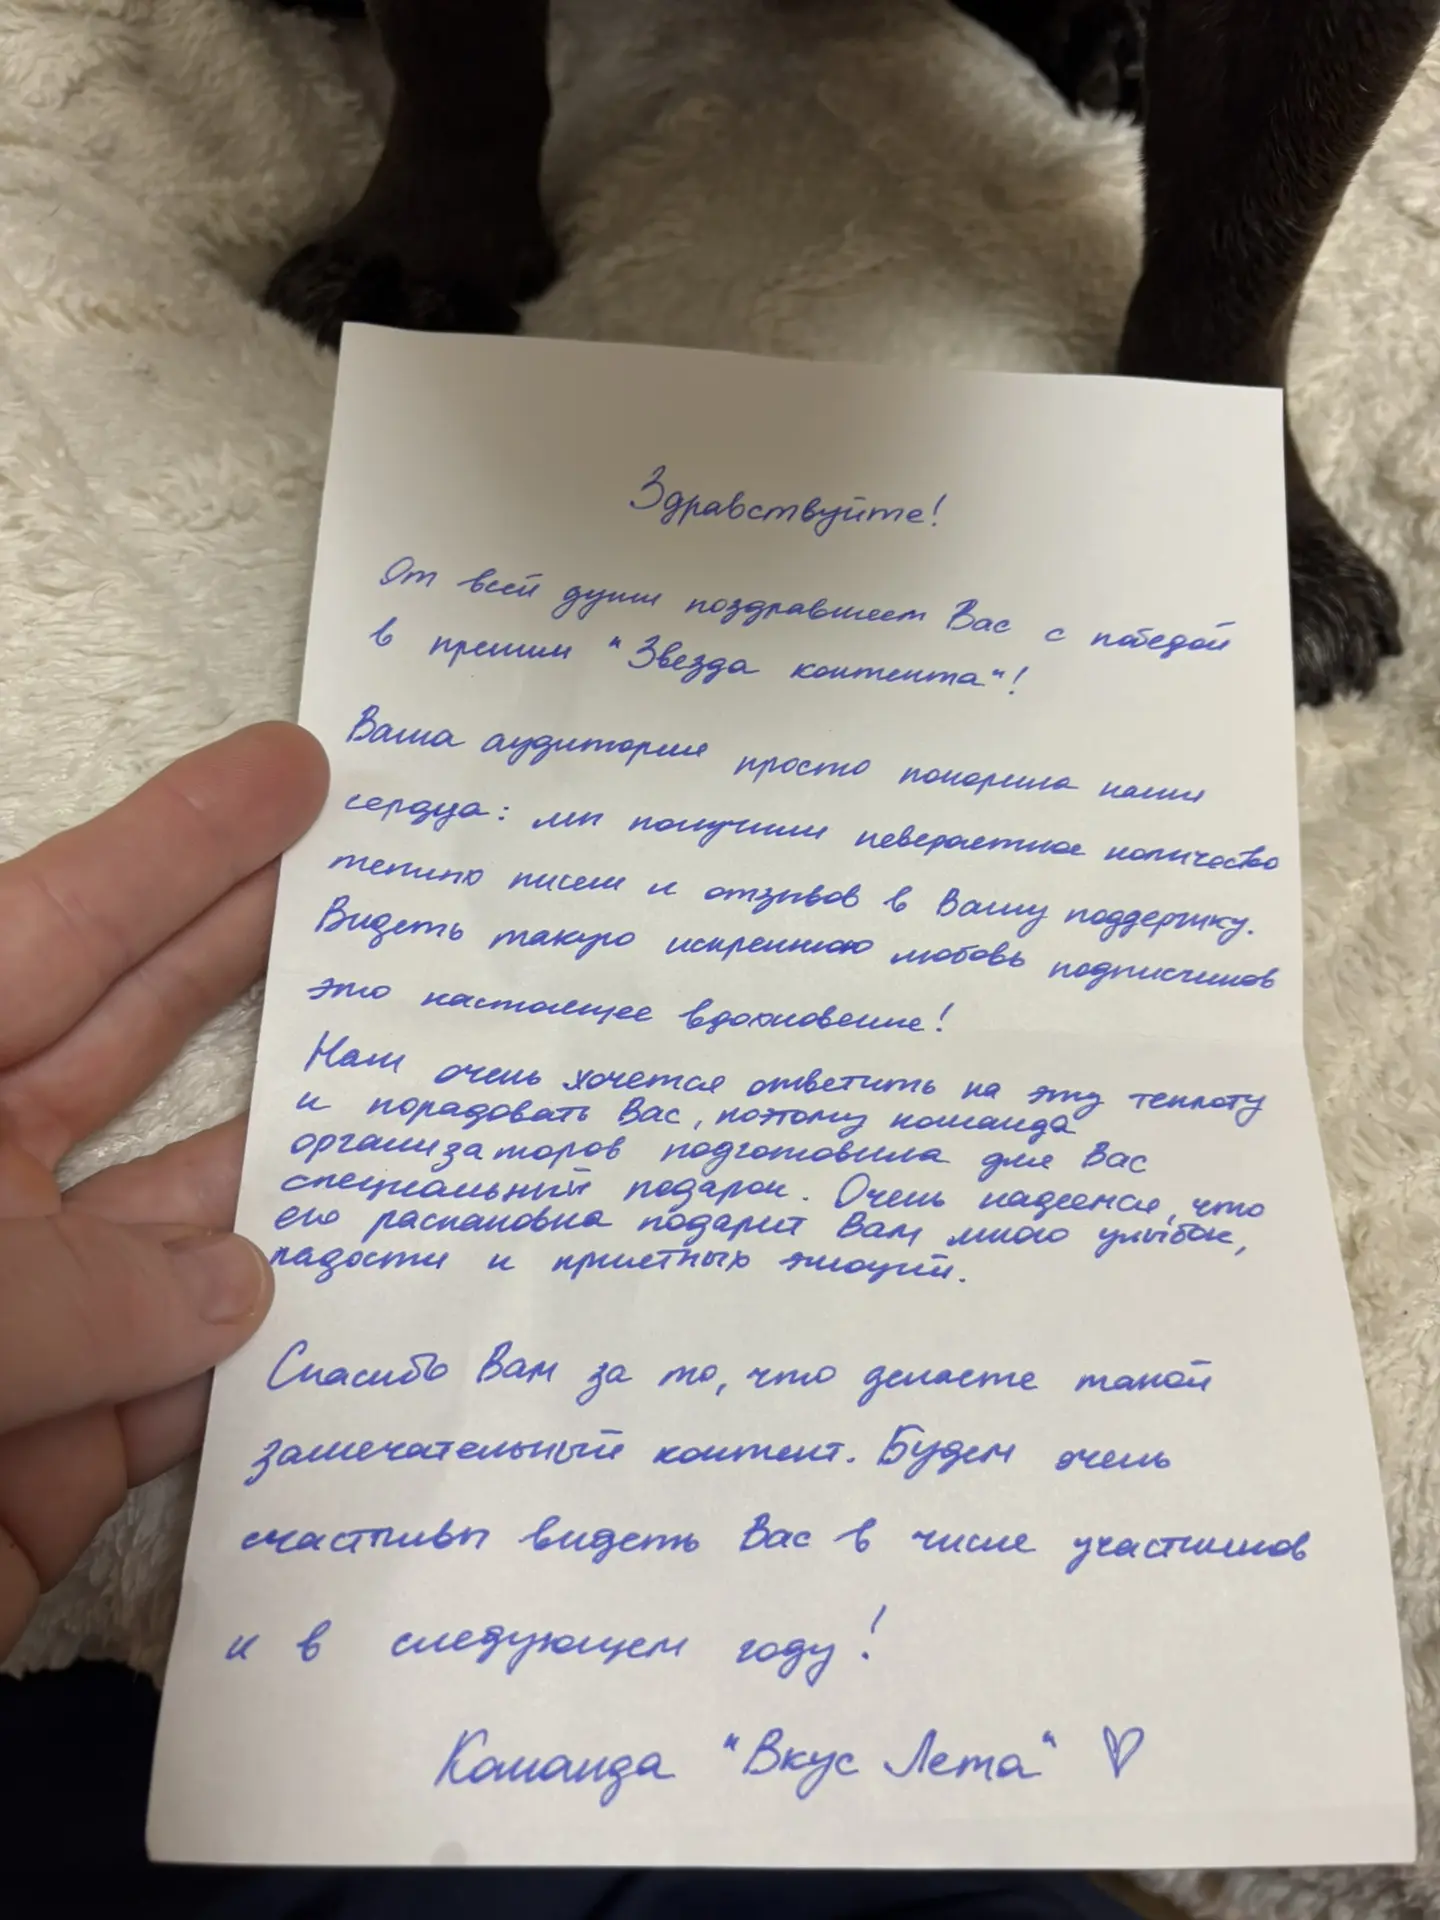 Здравствуйте!
От всей души поздравляем Вас с победой
в премии "Звезда контента"!
Ваша аудитория просто покорила наши
сердца: мы получили невероятное количество
теплых писем и отзывов в Вашу поддержку.
Видеть такую искреннюю любовь подписчиков
это настоящее вдохновение!
Нам очень хочется ответить на эту теплоту
и порадовать Вас, поэтому команда
организаторов подготовила для Вас
специальный подарок. Очень надеемся, что
его распаковка подарит Вам много улыбок,
радости и приятных эмоций.
Спасибо Вам за то, что делаете такой
замечательный контент. Будем очень
счастливы видеть Вас в числе участников
и в следующем году!
Команда "Вкус Лета" ♡